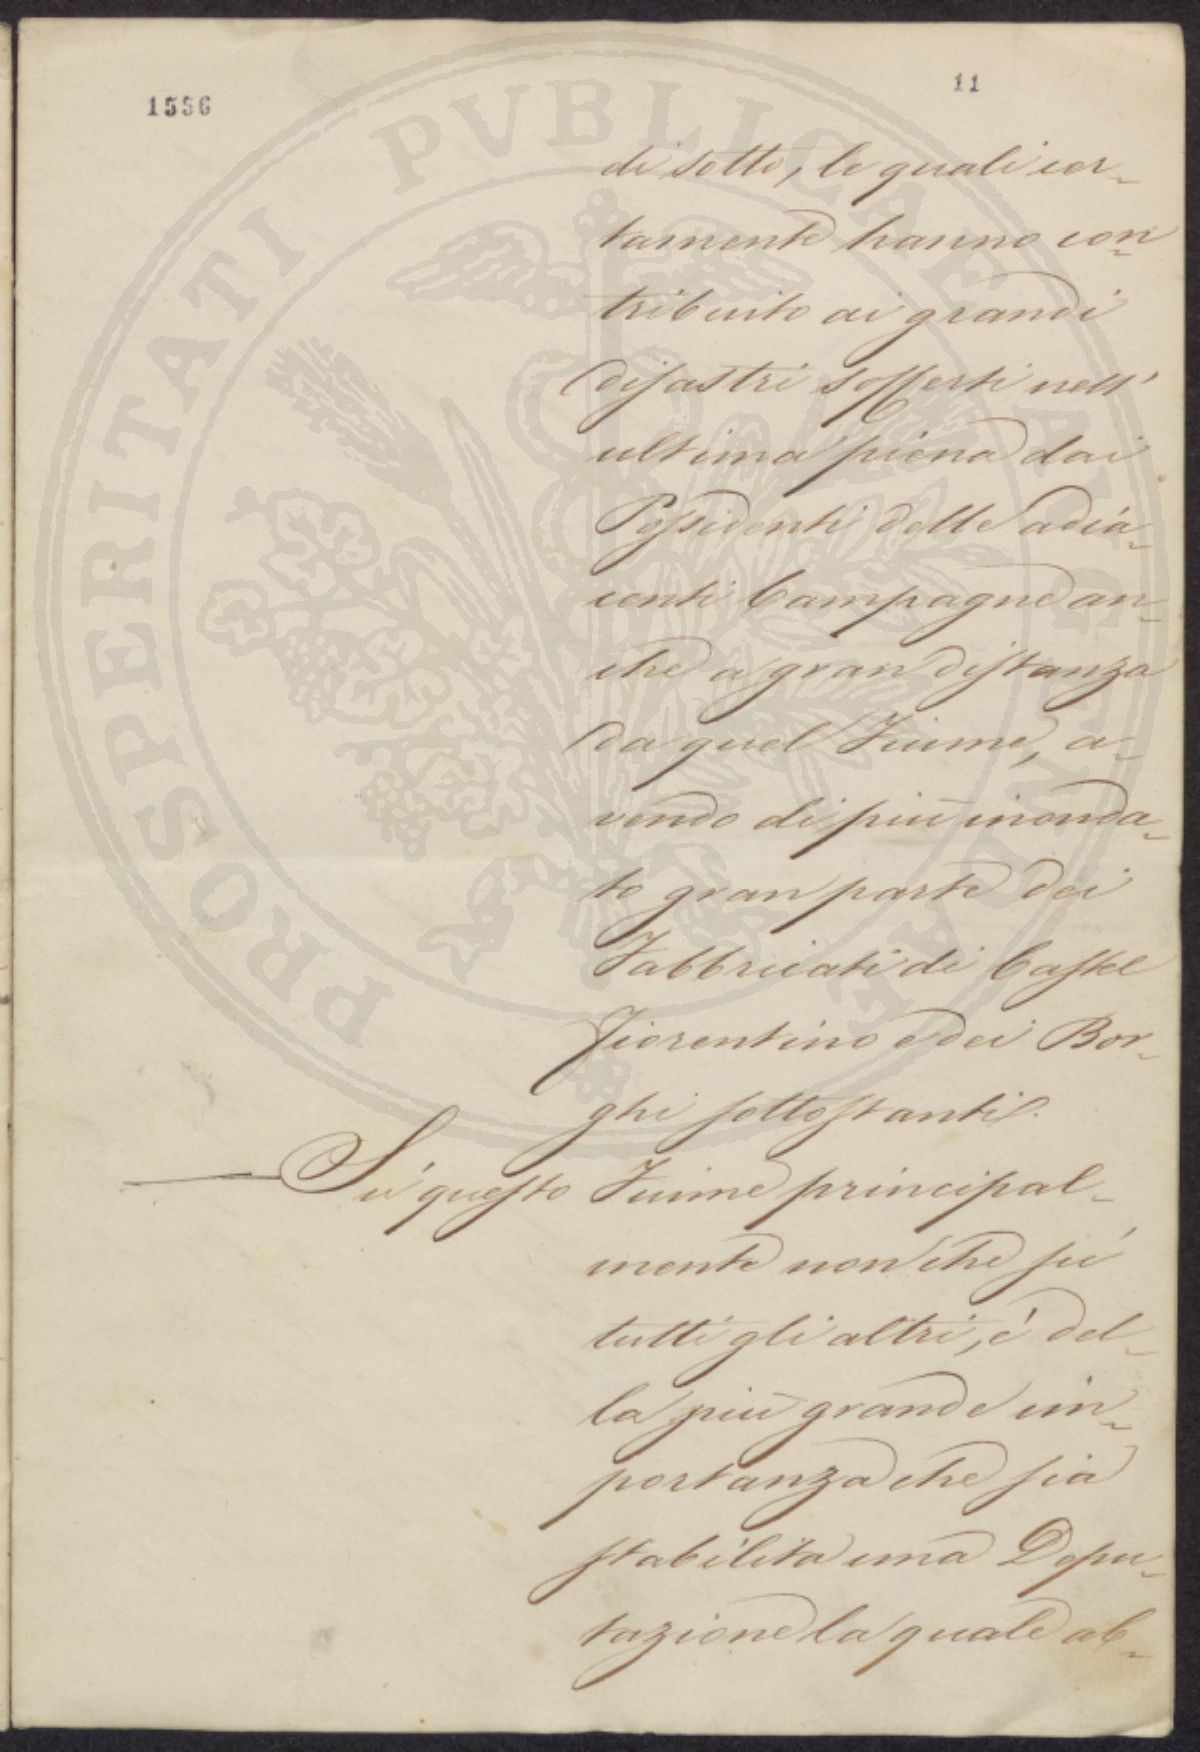 1556
11
di sotto, le quali cer-
tamente hanno con-
tribuito ai grandi
disastri sofferti nell'
ultima piena dai
Possidenti delle adia-
centi Campagne an-
che a gran distanza
da quel Fiume, a-
vendo di più inonda-
to gran parte dei
Fabbricati di Castel
Fiorentino e dei Bor-
ghi sottostanti.
Su questo Fiume principal-
mente non che su
tutti gli altri, é del-
la più grande im-
portanza che sia
stabilita una Depu-
tazione la quale ab-
PROSPERITATI PVBLICAE AVGENDAE